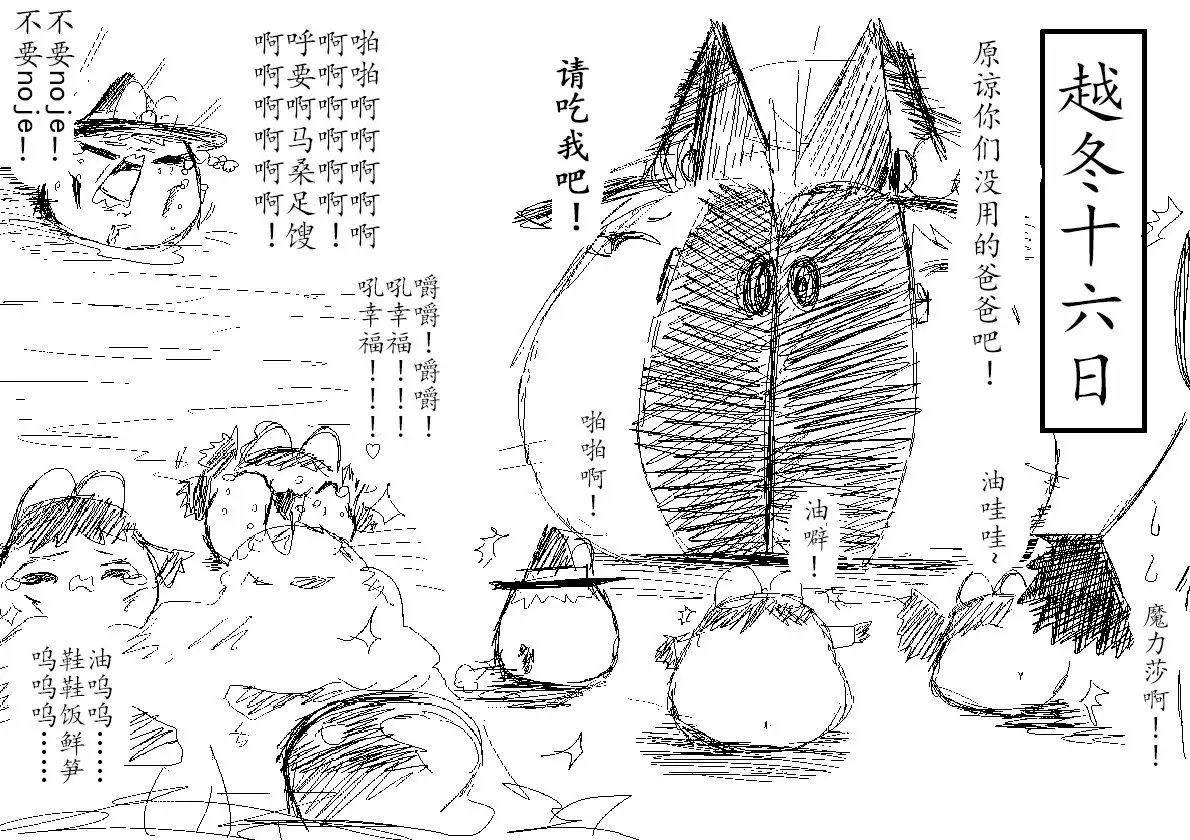 越冬十六日
原谅你们没用的爸爸吧！
请吃我吧！
啪啪啊啊啊啊啊
啊啊啊啊啊啊！
呼要啊马桑足馊
啊啊啊啊啊啊！
不要noje！
不要noje！
嚼嚼！嚼嚼！
吼幸福！！！
吼幸福！！！♡
魔力莎啊！！
油哇哇~
油噼！
啪啪啊！
油呜呜……
鞋鞋饭鲜笋
呜呜呜……